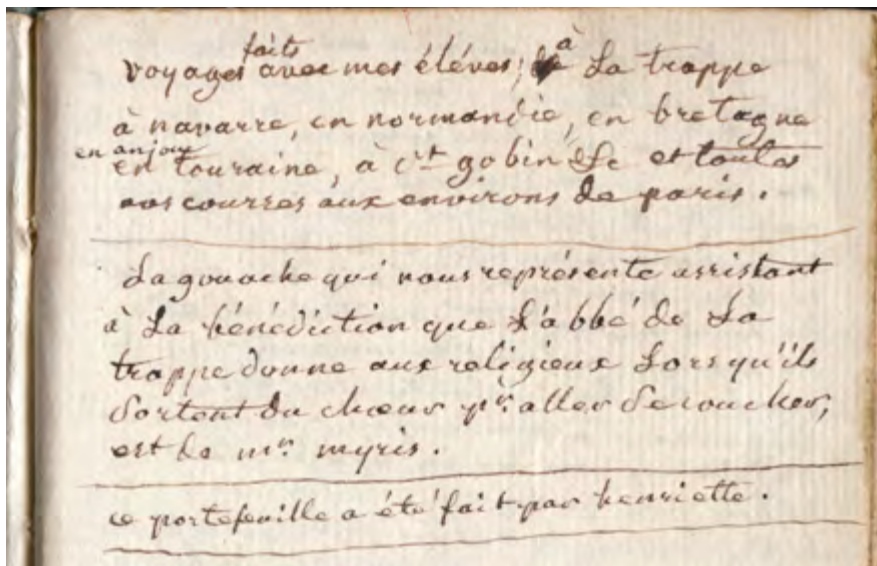 faits
voyages avec mes élèves; à La trappe
à navarre, en normandie, en bretagne
en anjou
en touraine, à st gobin &c et toutes
nos courses aux environs de paris.
La gouache qui nous représente assistant
à La bénédiction que L'abbé de La
trappe donne aux religieux Lorsqu'ils
Sortent du chœur pr. aller Se coucher,
est de mr. myris.
ce portefeuille a été fait par henriette.